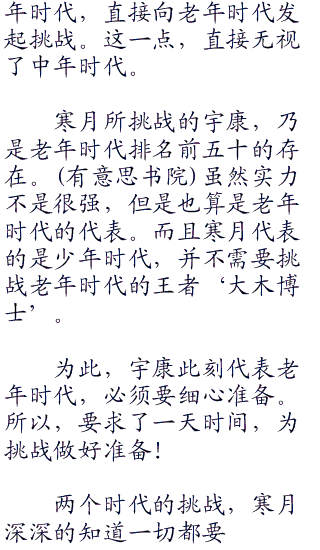 年时代，直接向老年时代发
起挑战。这一点，直接无视
了中年时代。
寒月所挑战的宇康，乃
是老年时代排名前五十的存
在。(有意思书院)虽然实力
不是很强，但是也算是老年
时代的代表。而且寒月代表
的是少年时代，并不需要挑
战老年时代的王者‘大木博
士’。
为此，宇康此刻代表老
年时代，必须要细心准备。
所以，要求了一天时间，为
挑战做好准备！
两个时代的挑战，寒月
深深的知道一切都要